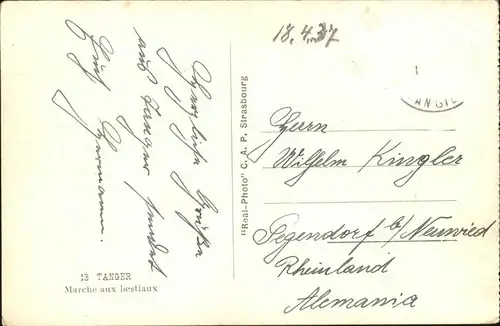 18.4.37
Herzliche Grüße
aus Tanger sendet
Hermann.
13 TANGER
Marche aux bestiaux
"Real-Photo" C. A. P. Strasbourg
Herrn
Wilhelm Kingler
Segendorf b/Neuwied
Rheinland
Alemania